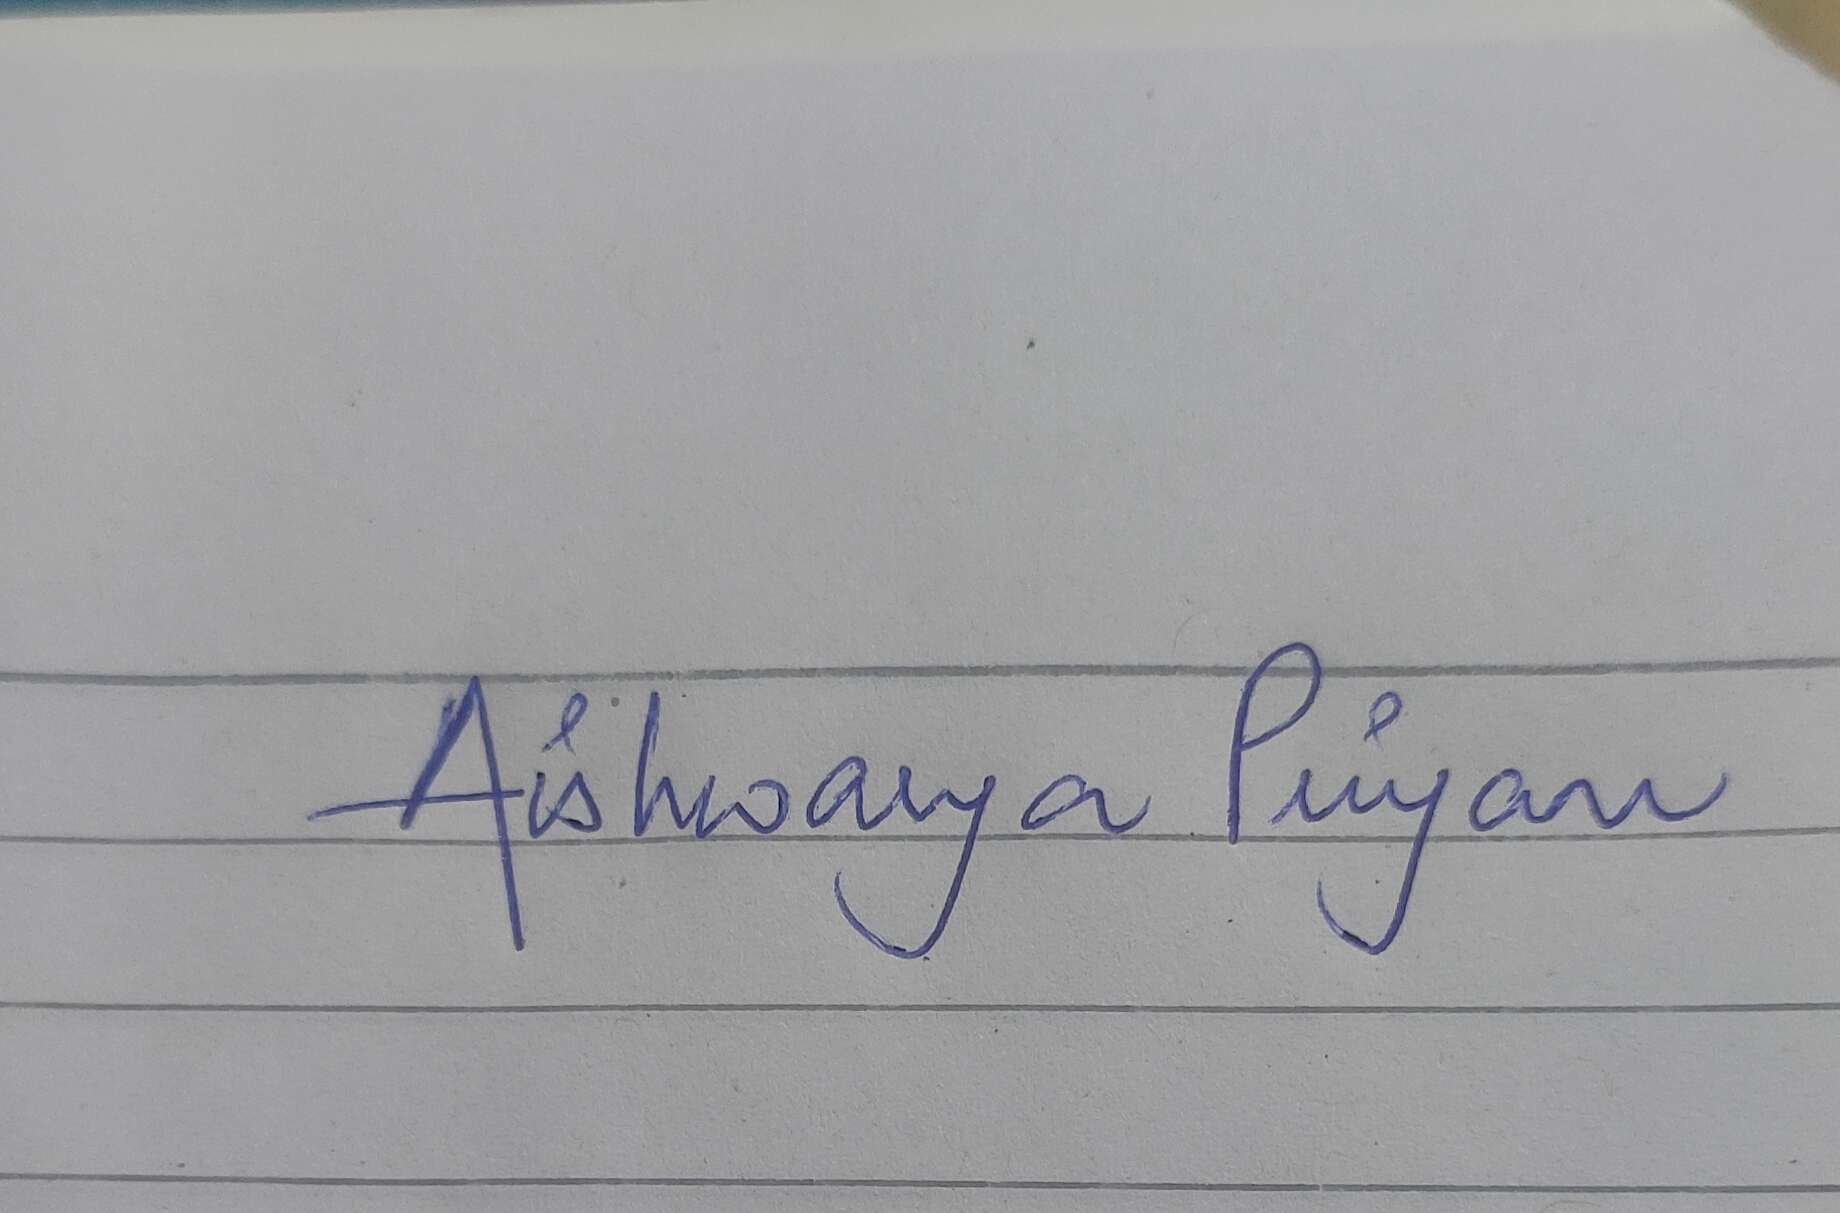 Aishwarya Priyan